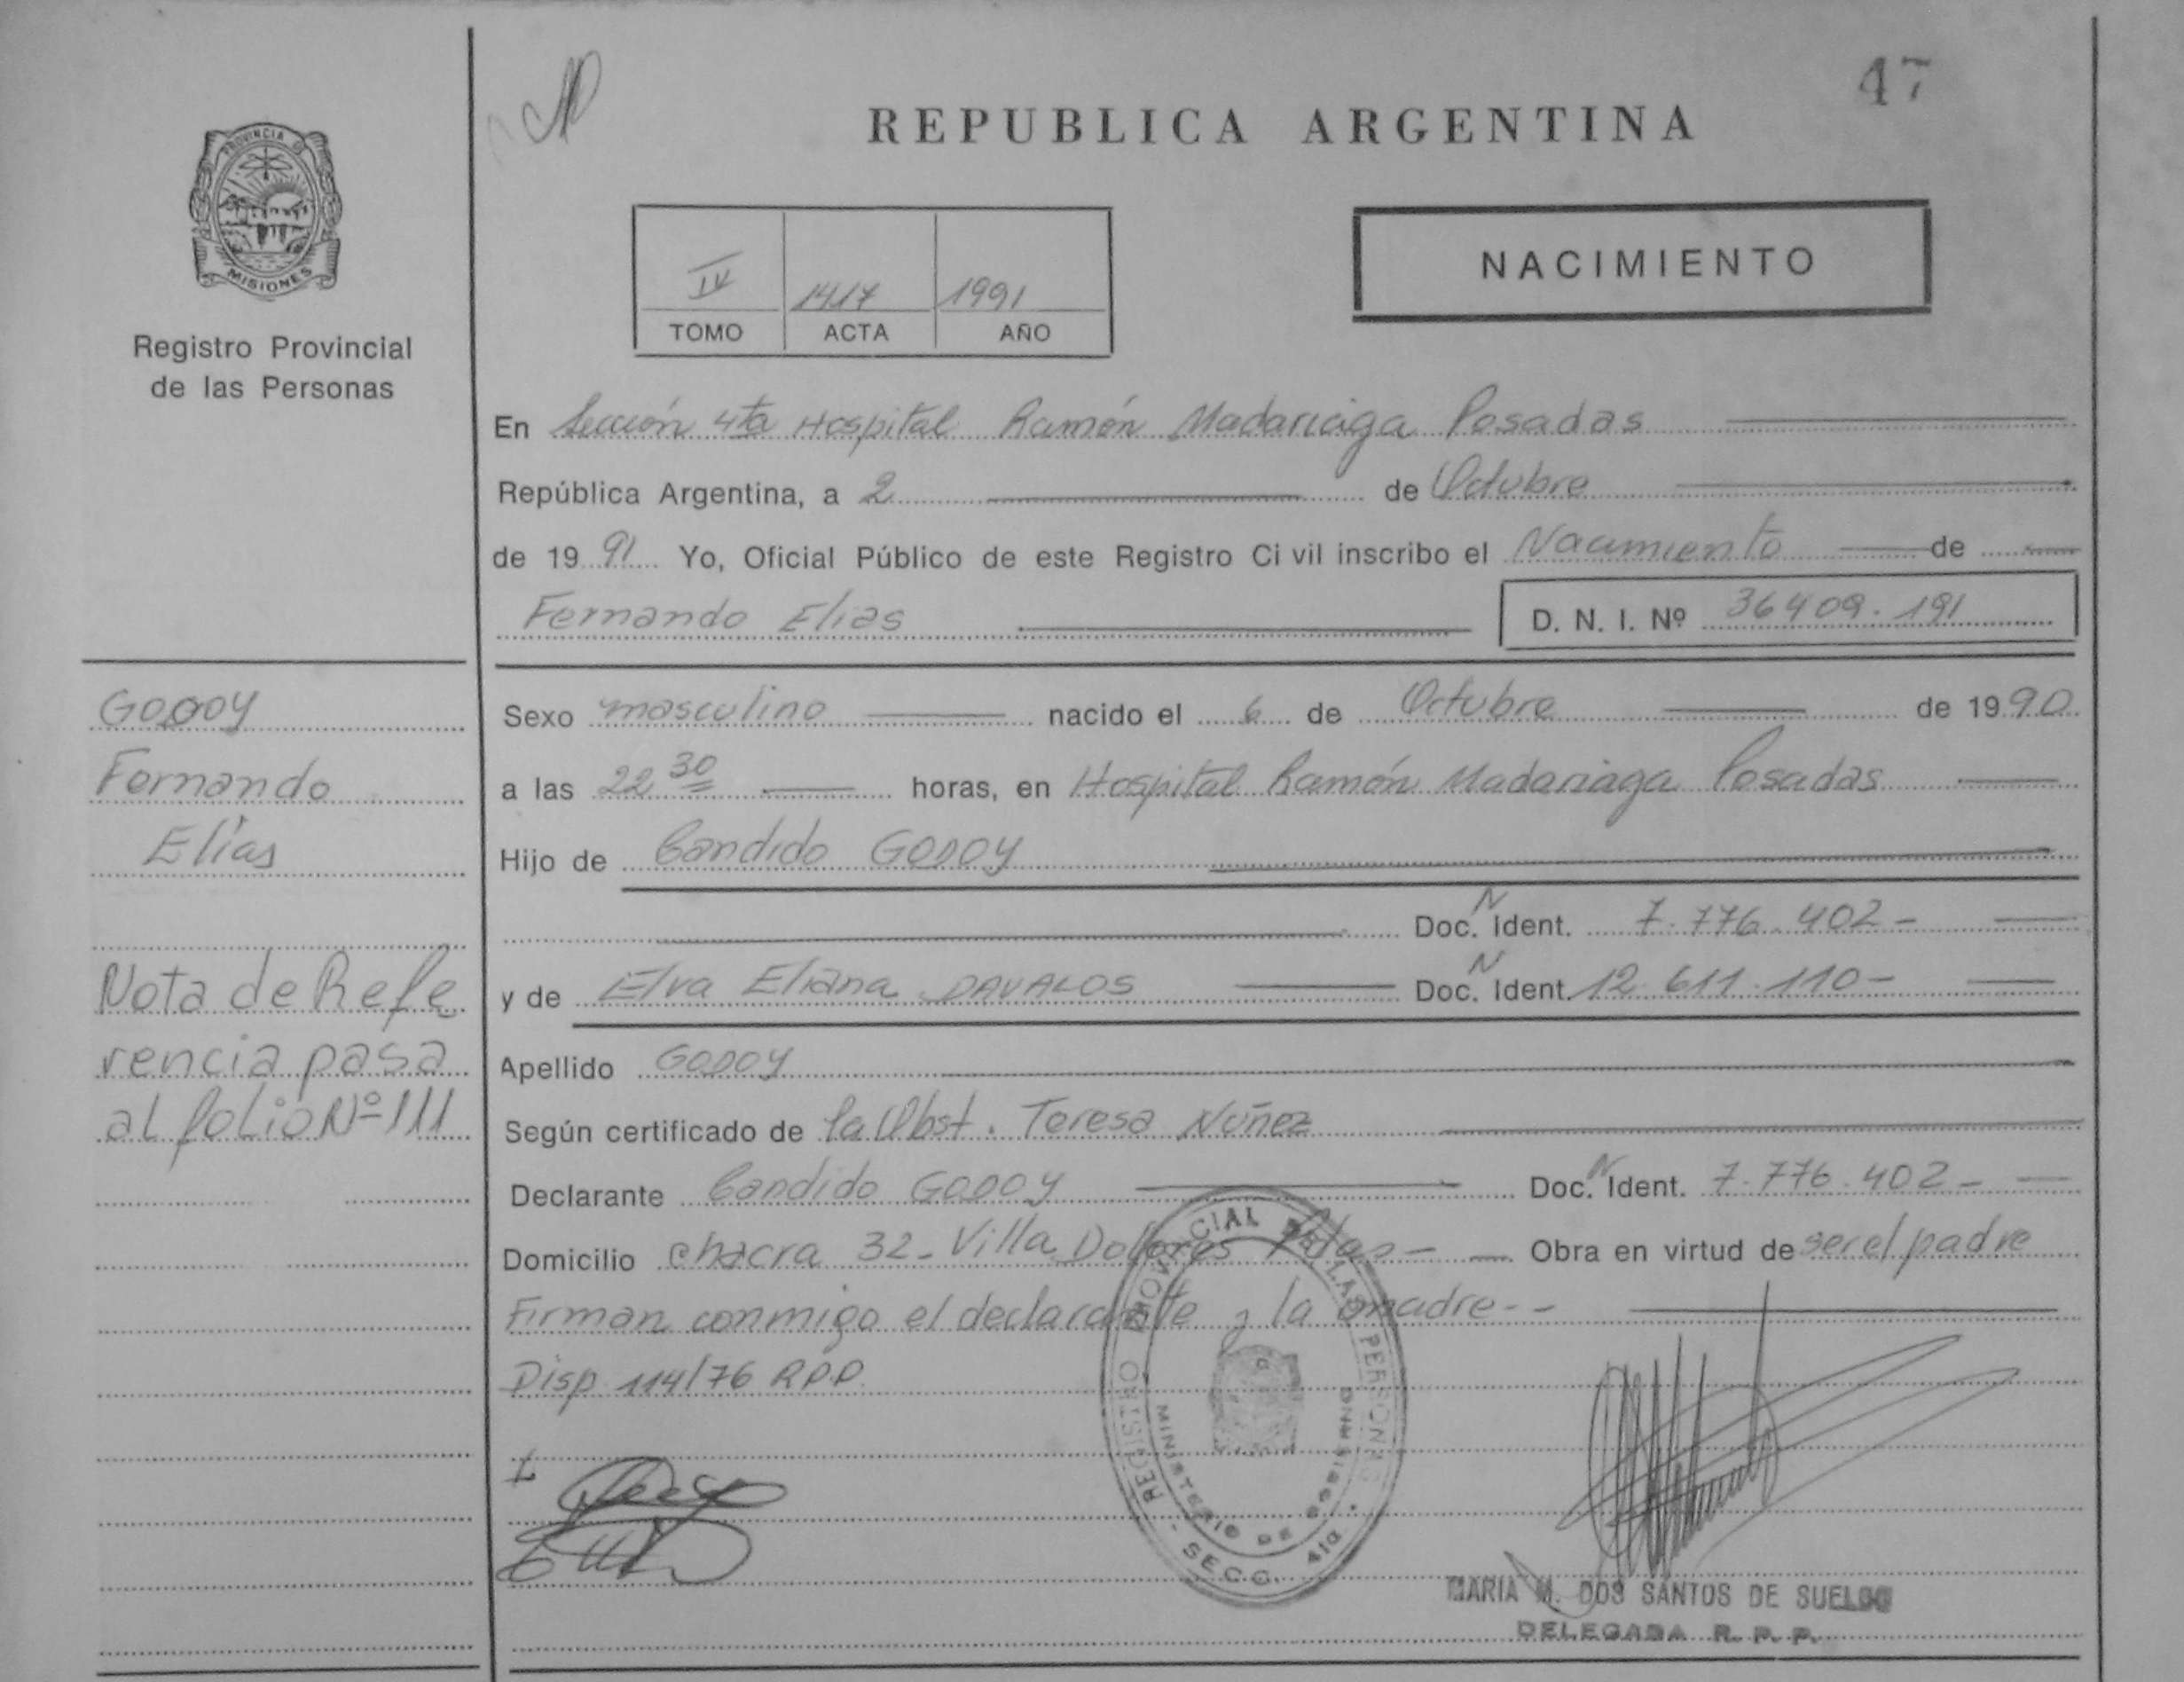 47
REPUBLICA ARGENTINA
PROVINCIA DE
MISIONES
Registro Provincial
de las Personas
NACIMIENTO
IV 1417 1991
TOMO ACTA AÑO
En Sección 4ta Hospital Ramón Madariaga Posadas
República Argentina, a 2 de Octubre
de 1991 Yo, Oficial Público de este Registro Ci vil inscribo el Nacimiento de
Fernando Elias D. N. I. Nº 36409.191
GODOY
Fernando
Elías
Nota de Refe
rencia pasa
al folio Nº 111
Sexo masculino nacido el 6 de Octubre de 1990
a las 22 30 horas, en Hospital Ramón Madariaga Posadas
Hijo de Candido GODOY
Doc. N Ident. 7.776.402-
y de Elva Eliana DAVALOS Doc. N Ident. 12.611.110-
Apellido GODOY
Según certificado de la Obst. Teresa Nuñez
Declarante Candido GODOY Doc. N Ident. 7.776.402-
Domicilio chacra 32- Villa Dolores Pdas- Obra en virtud de ser el padre
Firman conmigo el declarante y la madre--
Disp 114/76 R.P.P.
REGISTRO PROVINCIAL DE LAS PERSONAS
MINISTERIO DE GOBIERNO
SECC. 4ta
MARIA M. DOS SANTOS DE SUELDO
DELEGADA R. P. P.